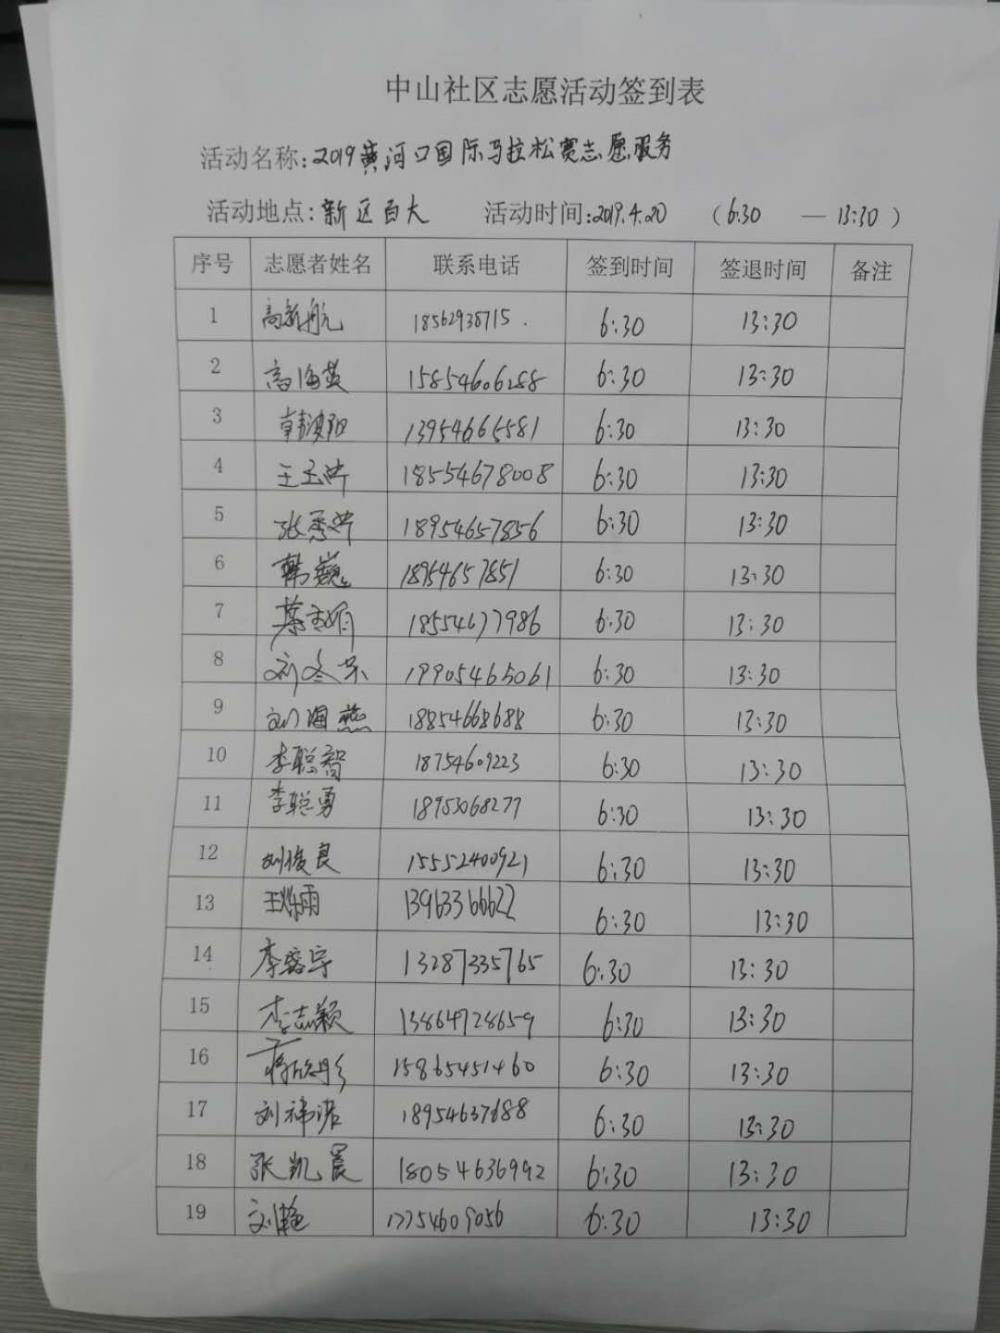 中山社区志愿活动签到表
活动名称:2019黄河口国际马拉松赛志愿服务
活动地点:新区百大 活动时间:2019.4.20 (6:30 — 13:30)
序号 志愿者姓名 联系电话 签到时间 签退时间 备注
1 高新航 18562938715. 6:30 13:30
2 高海英 15854606288 6:30 13:30
3 13954665581 6:30 13:30
4 王玉萍 18554678008 6:30 13:30
5 张秀萍 18954657856 6:30 13:30
6 韩巍 18954657851 6:30 13:30
7 18554677986 6:30 13:30
8 刘冬芬 19905465061 6:30 13:30
9 刘海燕 18854668688 6:30 13:30
10 李聪智 18754609223 6:30 13:30
11 李聪勇 18953068277 6:30 13:30
12 刘俊良 15552400921 6:30 13:30
13 王烁雨 13963366622 6:30 13:30
14 李睿宇 13287335765 6:30 13:30
15 李志颖 13864728659 6:30 13:30
16 蒋欣彤 15865451460 6:30 13:30
17 刘祎浩 18954637688 6:30 13:30
18 张凯晨 18054636992 6:30 13:30
19 刘艳 17754609056 6:30 13:30